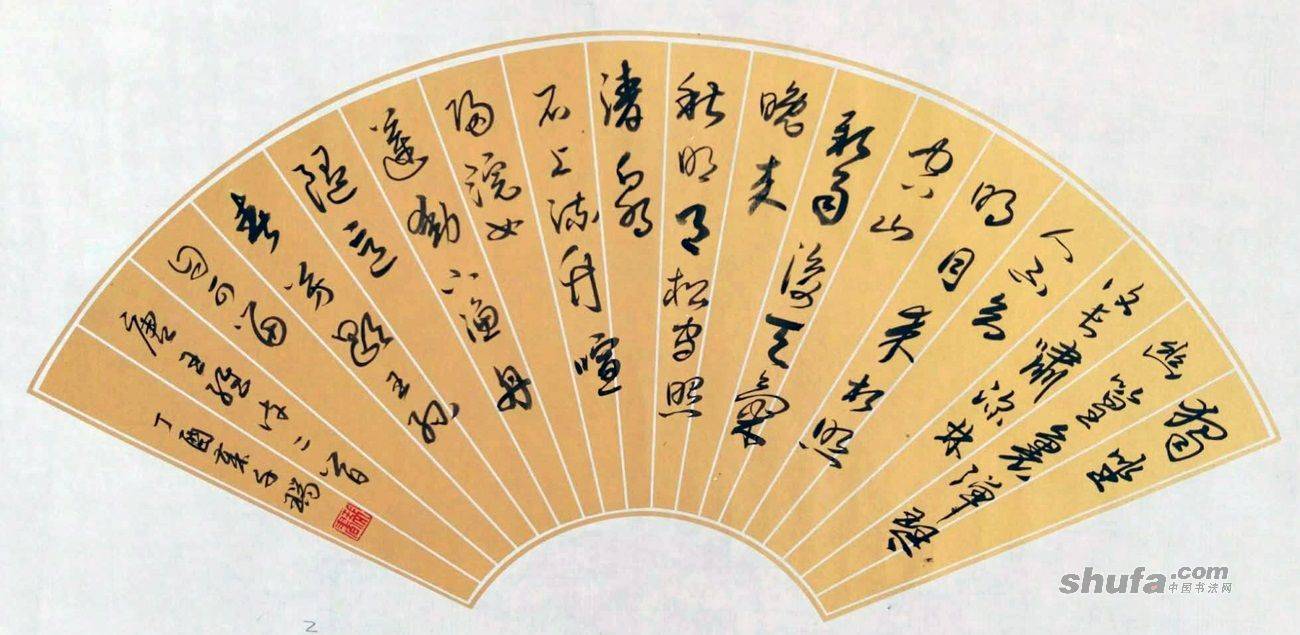 獨坐
幽篁裏彈琴
復長嘯深林
人不知
明月来相照
空山
新雨後天氣
晚来
秋明月松间照
清泉
石上流竹喧
归浣女
莲动下渔舟
随意
春芳歇王孙
自可留
唐王维诗二首
丁酉
shufa.com
中国书法网